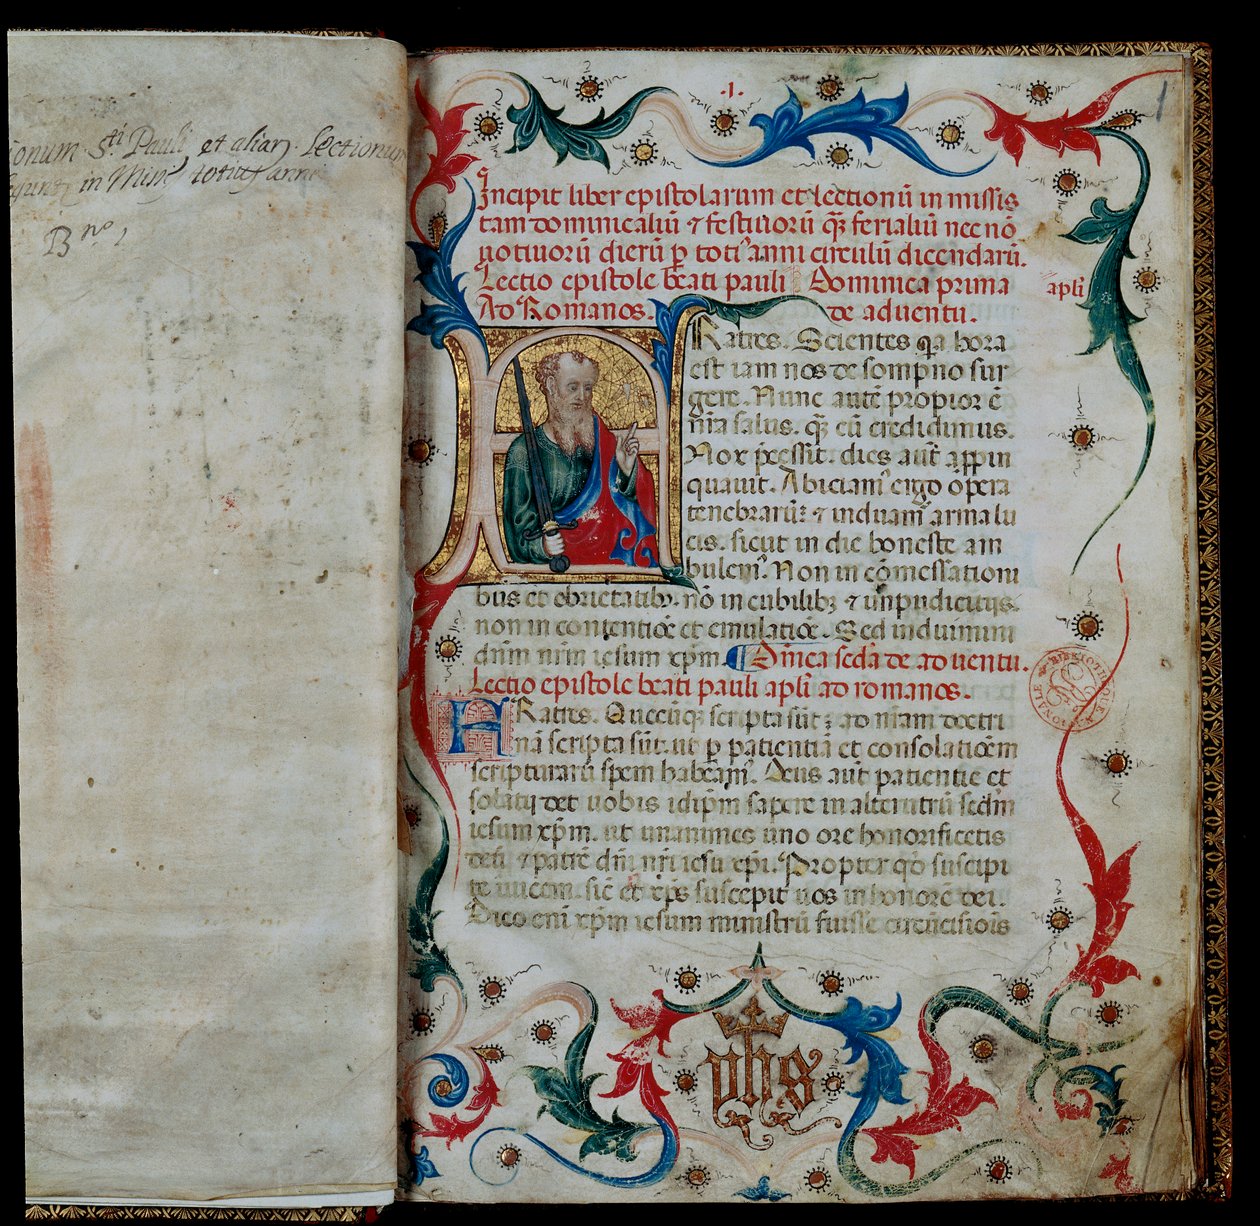 onum Sti Pauli et aliar. Lectionum
in totius anni
Bno,
2
.1.
1
Incipit liber epistolarum et lectionū in missis
tam dominicaliū ⁊ festiuorū q̄ȝ ferialiū nec nō
uotiuorū dierū ꝑ toti᾽ anni circulū dicendarū.
Lectio epistole beati pauli apl̄i Dominica prima
Ad Romanos. de aduentu.
FRatres. Scientes q̄a hora
est iam nos de sompno sur
gere. Nunc autē propior ē
nr̄a salus. q̄ȝ cū credidimus.
Nox p̄cessit. dies aūt appin
quauit. Abiciam᾽ ergo opera
tenebrarū: ⁊ induam᾽ arma lu
cis. sicut in die honeste am
bulem᾽. Non in cōmessationi
bus et ebrietatibȝ. nō in cubilibȝ ⁊ inpudicitijs.
non in contentiōe et emulatiōe. Sed induimini
dn̄m nr̄m iesum xp̄m. Dn̄ica scd̄a de aduentu.
Lectio epistole beati pauli apl̄i ad romanos.
FRatres. Quecūqȝ scripta sūt: ad nr̄am doctri
nā scripta sūt. ut ꝑ patientiā et consolatiōem
scripturarū spem habeam᾽. Deus aūt patientie et
solatij det uobis idip̄m sapere in alterutrū scd̄m
iesum xp̄m. ut unanimes uno ore honorificetis
deū ⁊ patrē dn̄i nr̄i iesu xp̄i. Propter qd̄ suscipi
te inuicem. sic̄ et xp̄s suscepit uos in honorē dei.
Dico eni᾽ xp̄m iesum ministrū fuisse circūcisiōis
BIBLIOTHEQUE ROYALE
yhs